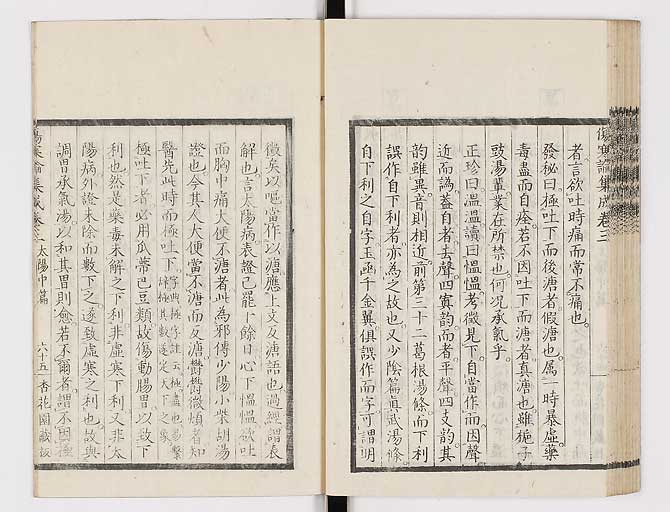 傷寒論集成卷三
者言欲吐時痛而常不痛也
發秘曰極吐下而後溏者假溏也属一時暴虛藥
毒盡而自痊若不因吐下而溏者真溏也雖梔子
豉湯軰業在所禁也何况承氣乎
正珍曰溫溫讀曰慍慍考徵見下自當作而因聲
近而譌蓋自者去聲四寘韵而者平聲四支韵其
韵雖異音則相近前第三十二葛根湯條而下利
誤作自下利者亦為之故也又少陰篇真武湯條
自下利之自字玉函千金翼俱誤作而字可謂明
徵矣以嘔當作以溏應上文反溏語也過經謂表
解也言太陽病表證已罷十餘日心下慍慍欲吐
而胸中痛大便不溏者此為邪傳少陽小柴胡湯
證也今其人大便當不溏而反溏鬱鬱微煩者知
醫先此時而極吐下
極吐下者必用瓜蒂巴豆類故傷動腸胃以致下
利也然是藥毒未解之下利非虛寒下利又非太
陽病外證未除而數下之遂致虛寒之利也故與
調胃承氣湯以和其胃則愈若不爾者謂不因極
傷寒論集成卷三 太陽中篇 六十五 杏花園藏板